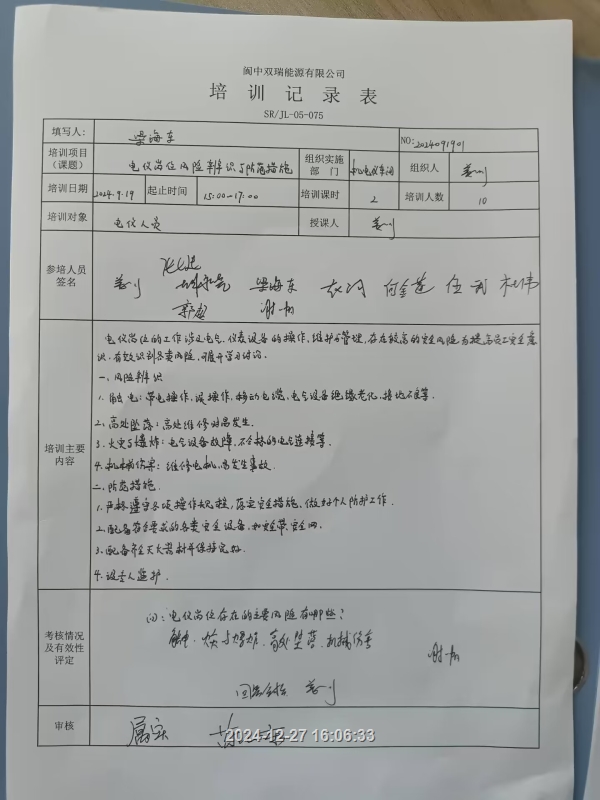 阆中双瑞能源有限公司
培训记录表
SR/JL-05-075
填写人: 梁海东 NO: 2024091901
培训项目（课题） 电仪岗位风险辨识与防范措施 组织实施部门 机电仪车间 组织人 姜川
培训日期 2024.9.19 起止时间 15:00-17:00 培训课时 2 培训人数 10
培训对象 电仪人员 授课人 姜川
参培人员签名
姜川 梁海东 伍 杜伟
谢
培训主要内容
电仪岗位的工作涉及电气、仪表设备的操作、维护与管理,存在较高的安全风险,为提高员工安全意
识,有效识别各类风险,可展开学习讨论.
一、风险辨识
1. 触电:带电操作,误操作,移动电缆,电气设备绝缘老化,接地不良等.
2. 高处坠落:高处维修时易发生.
3. 火灾与爆炸:电气设备故障,不合格的电气连接等.
4. 机械伤害:维修电机,易发生事故.
二、防范措施.
1. 严格遵守各项操作规程,落实安全措施,做好个人防护工作.
2. 配备符合要求的各类安全设备,如安全带安全网.
3. 配备齐全灭火器材并保持完好.
4. 设专人监护.
考核情况及有效性评定
问:电仪岗位存在的主要风险有哪些?
触电、火灾与爆炸、高处坠落、机械伤害
谢
回答合格 姜川
审核 属实
2024-12-27 16:06:33